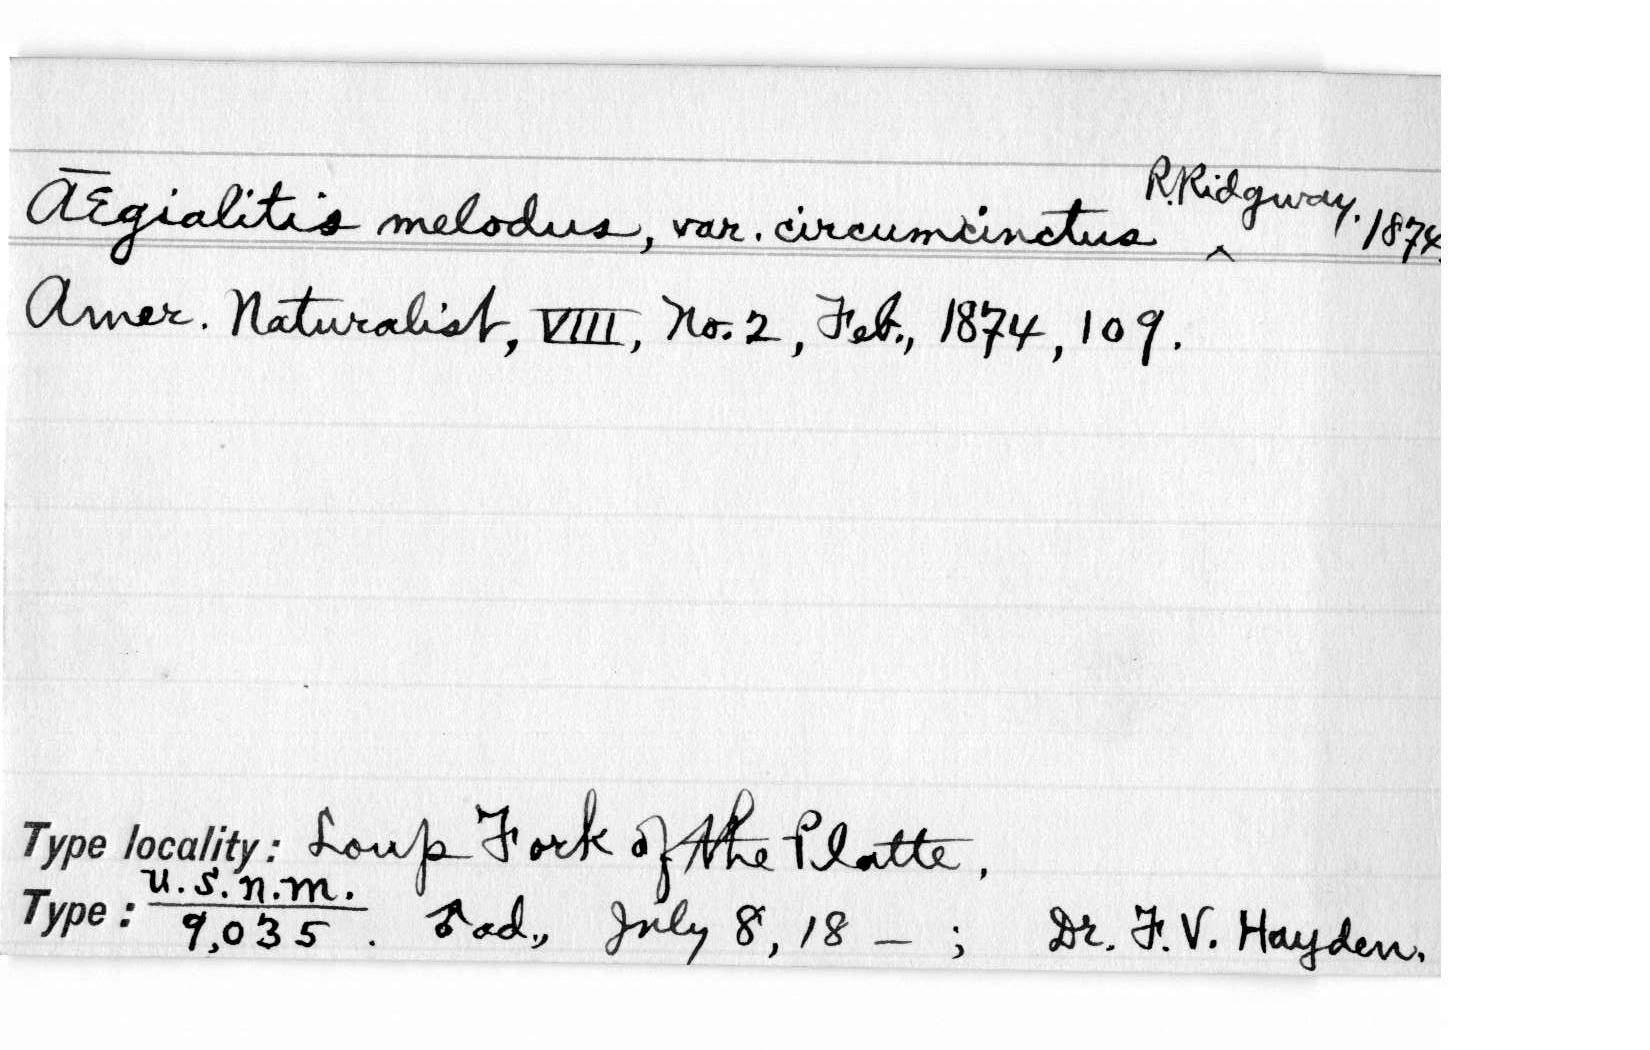 Ægialitis melodus, var. circumcinctus ‸ R. Ridgway. 1874.
Amer. Naturalist, VIII, No. 2, Feb., 1874, 109.
Type locality: Loup Fork of the Platte.
Type: U.S.N.M. 9,035. ♂ ad., July 8, 18 — ; Dr. F. V. Hayden.